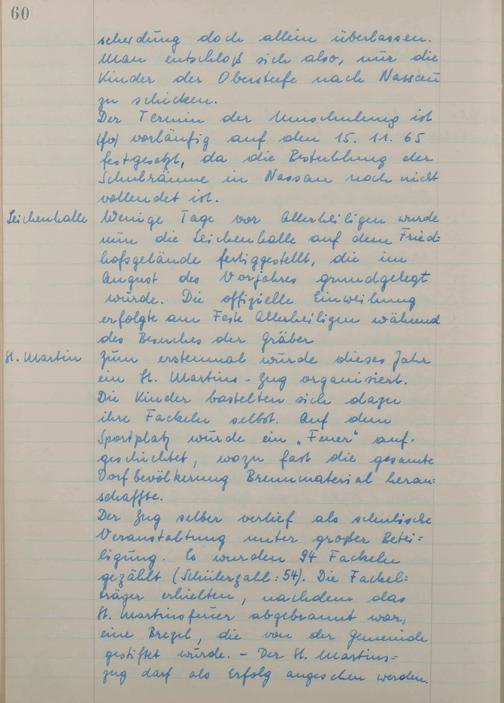 60
scheidung doch allein überlassen.
Man entschloß sich also, nur die
Kinder der Oberstufe nach Nassau
zu schicken.
Der Termin der Umschulung ist
vorläufig auf den 15. 11. 65
festgesetzt, da die Bestuhlung der
Schulräume in Nassau noch nicht
vollendet ist.
Leichenhalle Wenige Tage vor Allerheiligen wurde
nun die Leichenhalle auf dem Fried=
hofsgelände fertiggestellt, die im
August des Vorjahres grundgelegt
wurde. Die offizielle Einweihung
erfolgte am Feste Allerheiligen während
des Besuches der Gräber
St. Martin Zum erstenmal wurde dieses Jahr
ein St. Martins-Zug organisiert.
Die Kinder bastelten sich dazu
ihre Fackeln selbst. Auf dem
Sportplatz wurde ein „Feuer" auf-
geschichtet, wozu fast die gesamte
Dorfbevölkerung Brennmaterial heran-
schaffte.
Der Zug selber verlief als schulische
Veranstaltung unter großer Betei=
ligung. Es wurden 94 Fackeln
gezählt (Schülerzahl: 54). Die Fackel=
träger erhielten, nachdem das
St. Martinsfeuer abgebrannt war,
eine Brezel, die von der Gemeinde
gestiftet wurde. – Der St. Martins=
zug darf als Erfolg angesehen werden.